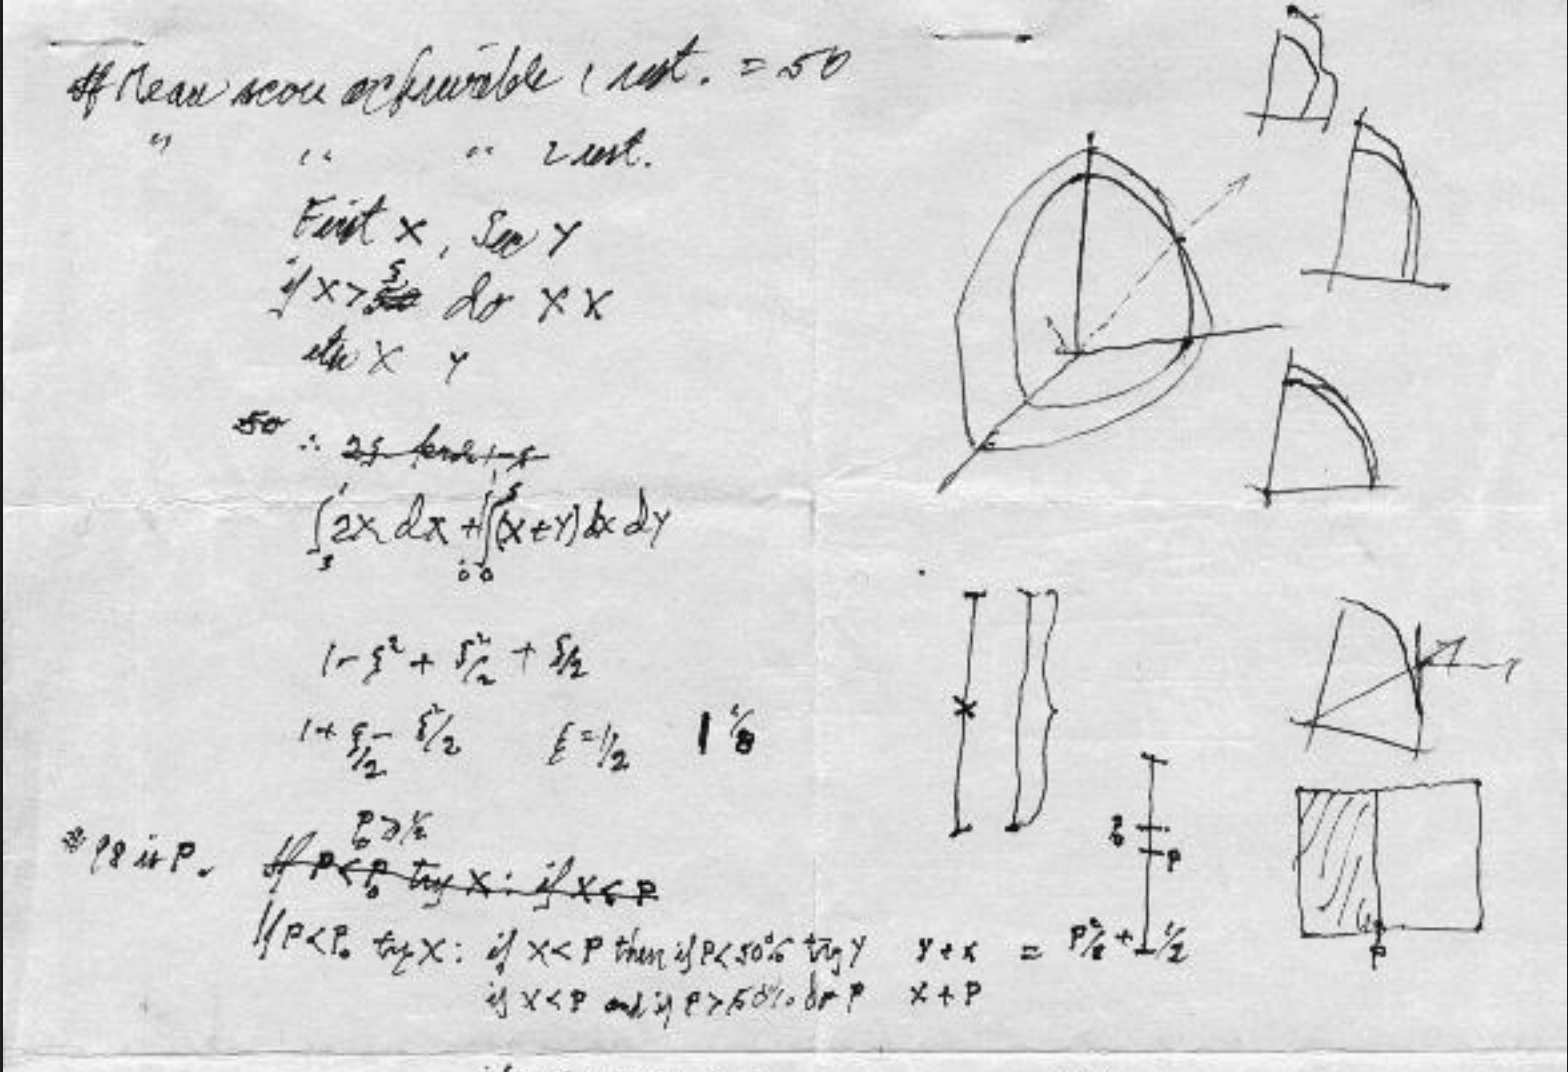 # Mean score achievable 1 rest. = 50
" " " 2 rest.
First X, Sec Y
if X > ξ do X X
else X Y
50 ∴
∫ 2x dx + ∫∫ (x+y) dx dy
1 - ξ² + ξ²/2 + ξ/2
1 + ξ/2 - ξ²/2 ξ = 1/2 1 1/8
P₀ > 1/2
If P < P₀ try X : if X < P
If P < P₀ try X : if X < P then if P < 50% try Y Y + X = P²/2 + 1/2
if X < P and if P > 50% do P X + P
P₀
P
P